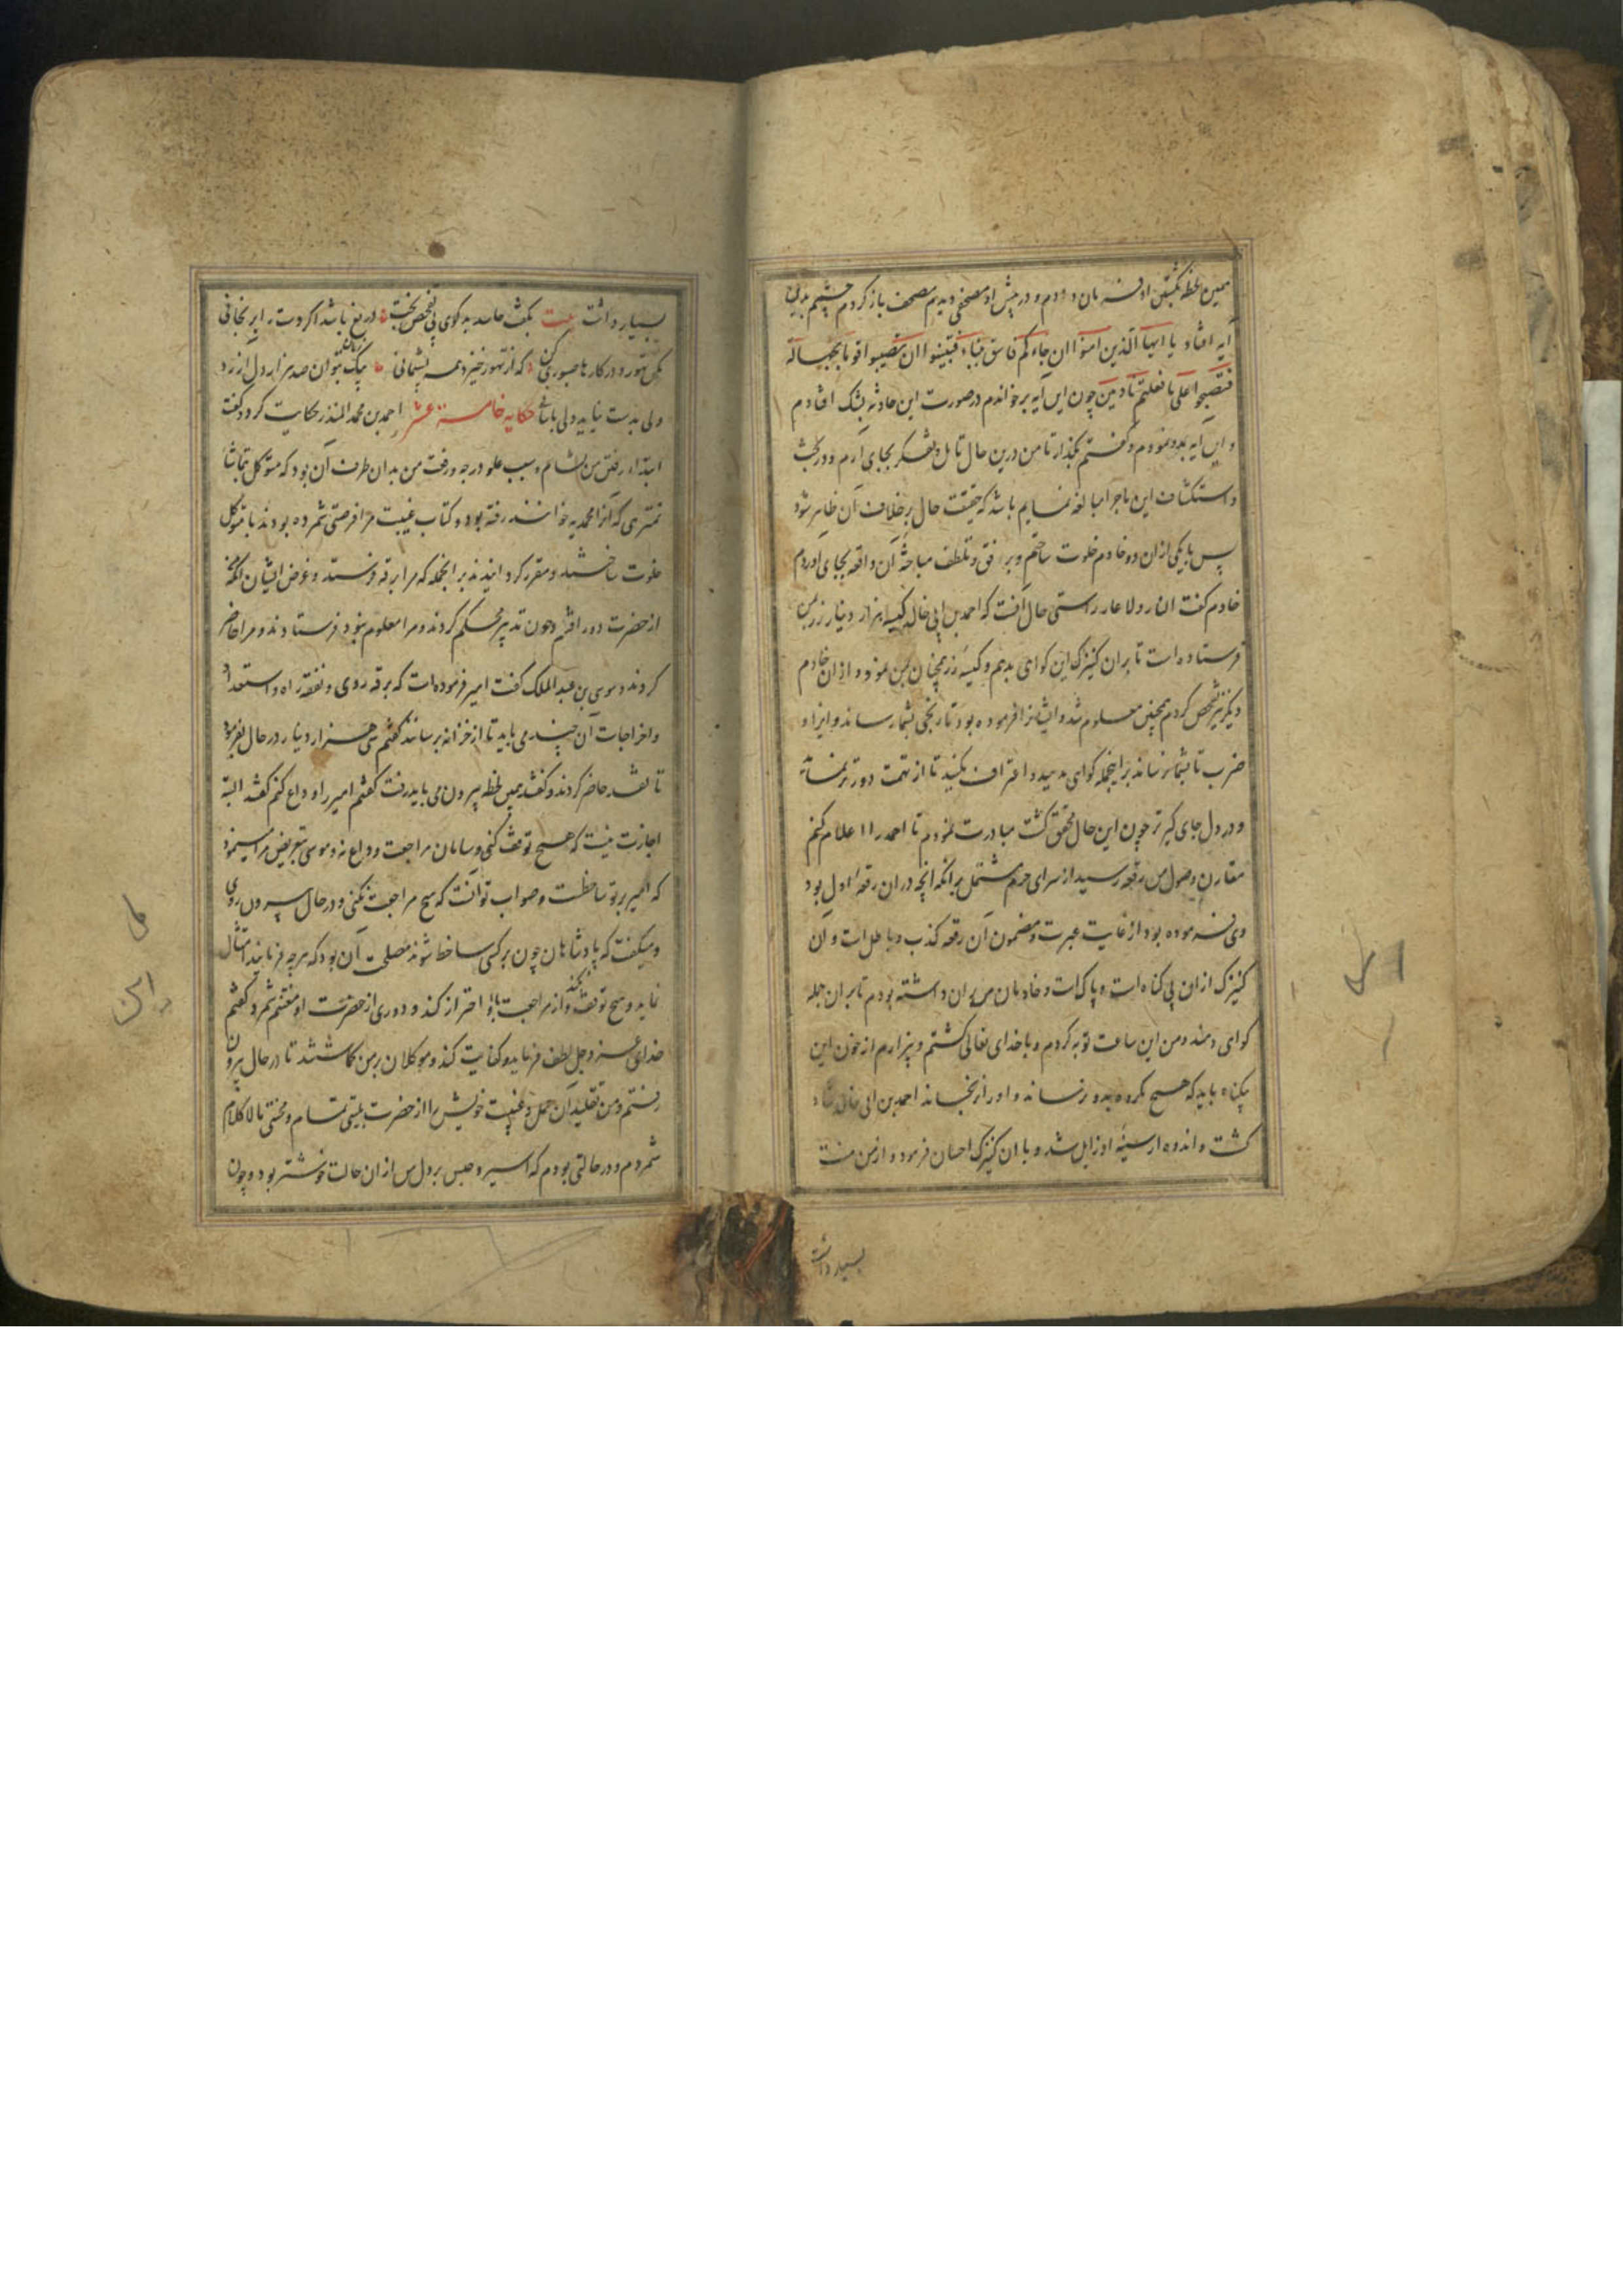 همین لحظه بکشتن او فرمان دادم و در پیش او مصحفی دیدم مصحف باز کردم چشمم بدین
آیه افتاد یا ایها الذین آمنوا ان جاءکم فاسق بنباء فتبینوا ان تصیبوا قوما بجهالة
فتصبحوا علی ما فعلتم نادمین چون این آیه برخواندم در صورت این حادثه بشک افتادم
و این آیه بدو نمودم و گفتم بگذار تا من درین حال تامل و تفکر بجای آرم و در بحث
و استکشاف این ماجرا مبالغه نمایم باشد که حقیقت حال برخلاف آن ظاهر شود
پس با یکی ازان دو خادم خلوت ساختم و برفق و تلطف مباحثه آن واقعه بجای آوردم
خادم گفت النار ولا العار راستی حال آنست که احمد بن ابی خالد کیسه هزار دینار زر بمن
فرستاده است تا بران کنیزک این گواهی بدهم و کیسه زر همچنان بمن نمود و ازان خادم
دیگر نیز تفحص کردم همچنین معلوم شد و ایشانرا فرموده بود تا رنجی بشما رساند و ایذا و
ضرب تا بشما نرساند بر اینجمله گواهی مدهید و اعتراف نکنید تا از تهمت دورتر نماید
و در دل جای گیرتر چون این حال محقق گشت مبادرت نمودم تا احمد را اعلام کنم
مقارن وصول من رقعه رسید از سرای حرم مشتمل برانکه آنچه دران رقعه اول بود
وی فرموده بود از غایت عبرت و مضمون آن رقعه کذب و باطل است و آن
کنیزک ازان بی گناه است و پاک است و خادمان من بران داشته بودم تا بران جمله
گواهی دهند و من این ساعت توبه کردم و با خدای تعالی گشتم و بیزارم از خون این
بیگناه باید که هیچ مکروه بدو نرساند و او را نرنجاند احمد بن ابی خالد شاد
گشت و اندوه از سینه او زایل شد و با آن کنیزک احسان فرمود و از من منت
بسیار داشت
بسیار داشت بیت بگفت حاسد بدگوی بی تفحص بخت دریغ باشد اگر دوست را برنجانی
مکن تهور و در کارها صبوری کن که از تهور خیزد همه پشیمانی بیک زمان بتوان صد هزار دل آزرد
ولی بدست نیاید دلی باسانی حکایه خامسة عشر احمد بن محمد المنذر حکایت کرد و گفت
ابتداء رفتن من بشام و سبب علو درجه و رفعت من بدان طرف آن بود که متوکل بتماشا
که آنرا محمدیه خوانند رفته بود و کتاب غیبت مرا فرصتی شمرده بودند با متوکل
خلوت ساختند و مقرر گردانیدند بر آنجمله که مرا برقه فرستد و غرض ایشان آنکه
از حضرت دور افتم و چون تدبیر محکم کردند و مرا معلوم نبود فرستادند و مرا حاضر
کردند و موسی بن عبدالملک گفت امیر فرموده است که برقه روی و نفقه راه و استعداد
و اخراجات آن چند می باید تا از خزانه برسانند گفتم سی هزار دینار در حال بفرمود
تا نقد حاضر کردند و گفتند همین لحظه بیرون می باید رفت گفتم امیر را وداع کنم گفتند البته
اجازت نیست که هیچ توقف کنی و سامان مراجعت و وداع نه و موسی بتعریض مرا مینمود
که امیر بر تو ساخط است و صواب تو آنست که هیچ مراجعت نکنی و در حال بیرون روی
و میگفت که پادشاهان چون بر کسی ساخط شوند مصلحت آن بود که هرچه فرمایند امتثال
نماید و هیچ توقف نکند و از مراجعت با او احتراز کند و دوری از حضرت او مغتنم شمرد گفتم
خدای عز و جل لطف فرماید و کفایت کند و موکلان بر من گماشتند تا در حال بیرون
رفتم و من تقلید آن عمل و غیبت خویش را از حضرت بلیتی تمام و محنتی مالا کلام
شمردم و در حالتی بودم که اسیر و حبس بر دل من ازان حالت خوشتر بود و چون